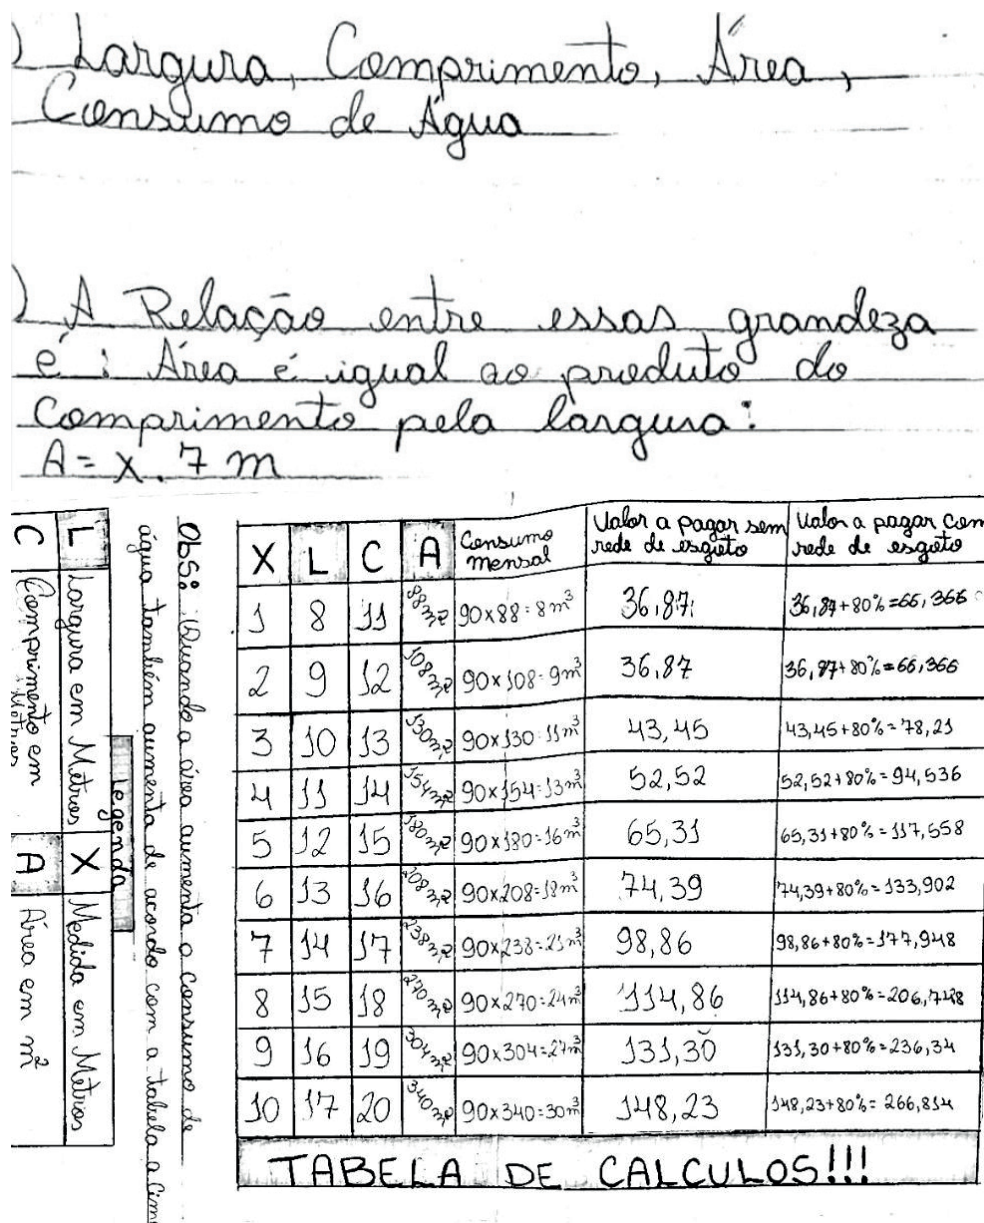 ) Largura, Comprimento, Área,
Consumo de Água
) A Relação entre essas grandeza
é : Área é igual ao produto do
comprimento pela largura:
A = X . 7 m
X L C A Consumo mensal Valor a pagar sem rede de esgoto Valor a pagar com rede de esgoto
1 8 11 88m² 90x88=8m³ 36,87 36,87+80%=66,366
2 9 12 108m² 90x108=9m³ 36,87 36,87+80%=66,366
3 10 13 130m² 90x130=11m³ 43,45 43,45+80%=78,21
4 11 14 154m² 90x154=13m³ 52,52 52,52+80%=94,536
5 12 15 180m² 90x180=16m³ 65,31 65,31+80%=117,558
6 13 16 208m² 90x208=18m³ 74,39 74,39+80%=133,902
7 14 17 238m² 90x238=21m³ 98,86 98,86+80%=177,948
8 15 18 270m² 90x270=24m³ 114,86 114,86+80%=206,748
9 16 19 304m² 90x304=27m³ 131,30 131,30+80%=236,34
10 17 20 340m² 90x340=30m³ 148,23 148,23+80%=266,814
TABELA DE CALCULOS!!!
Obs: Quando a área aumenta o consumo de
água também aumenta de acordo com a tabela acima
Legenda
L Largura em Metros X Medida em Metros
C Comprimento em Metros A Área em m²